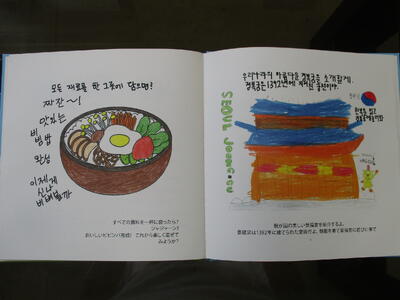 모두 재료를 한 그릇에 담으면!
짜잔~!
맛있는
비빔밥
완성
이제게
신나
비벼볼까
すべての食料を一杯に盛ったら?
ジャジャーン!!
おいしいビビンバ完成! これから楽しく混ぜて
みようか?
우리나라의 아름다운 경복궁을 소개할게.
경복궁은 1392년에 지어진 궁전이야.
한복을 입고
SEOUL JONGNO-GU
我が国の美しい景福宮を紹介するよ。
景福宮は1392年に建てられた宮殿だよ。韓服を着て景福宮に遊びに来て